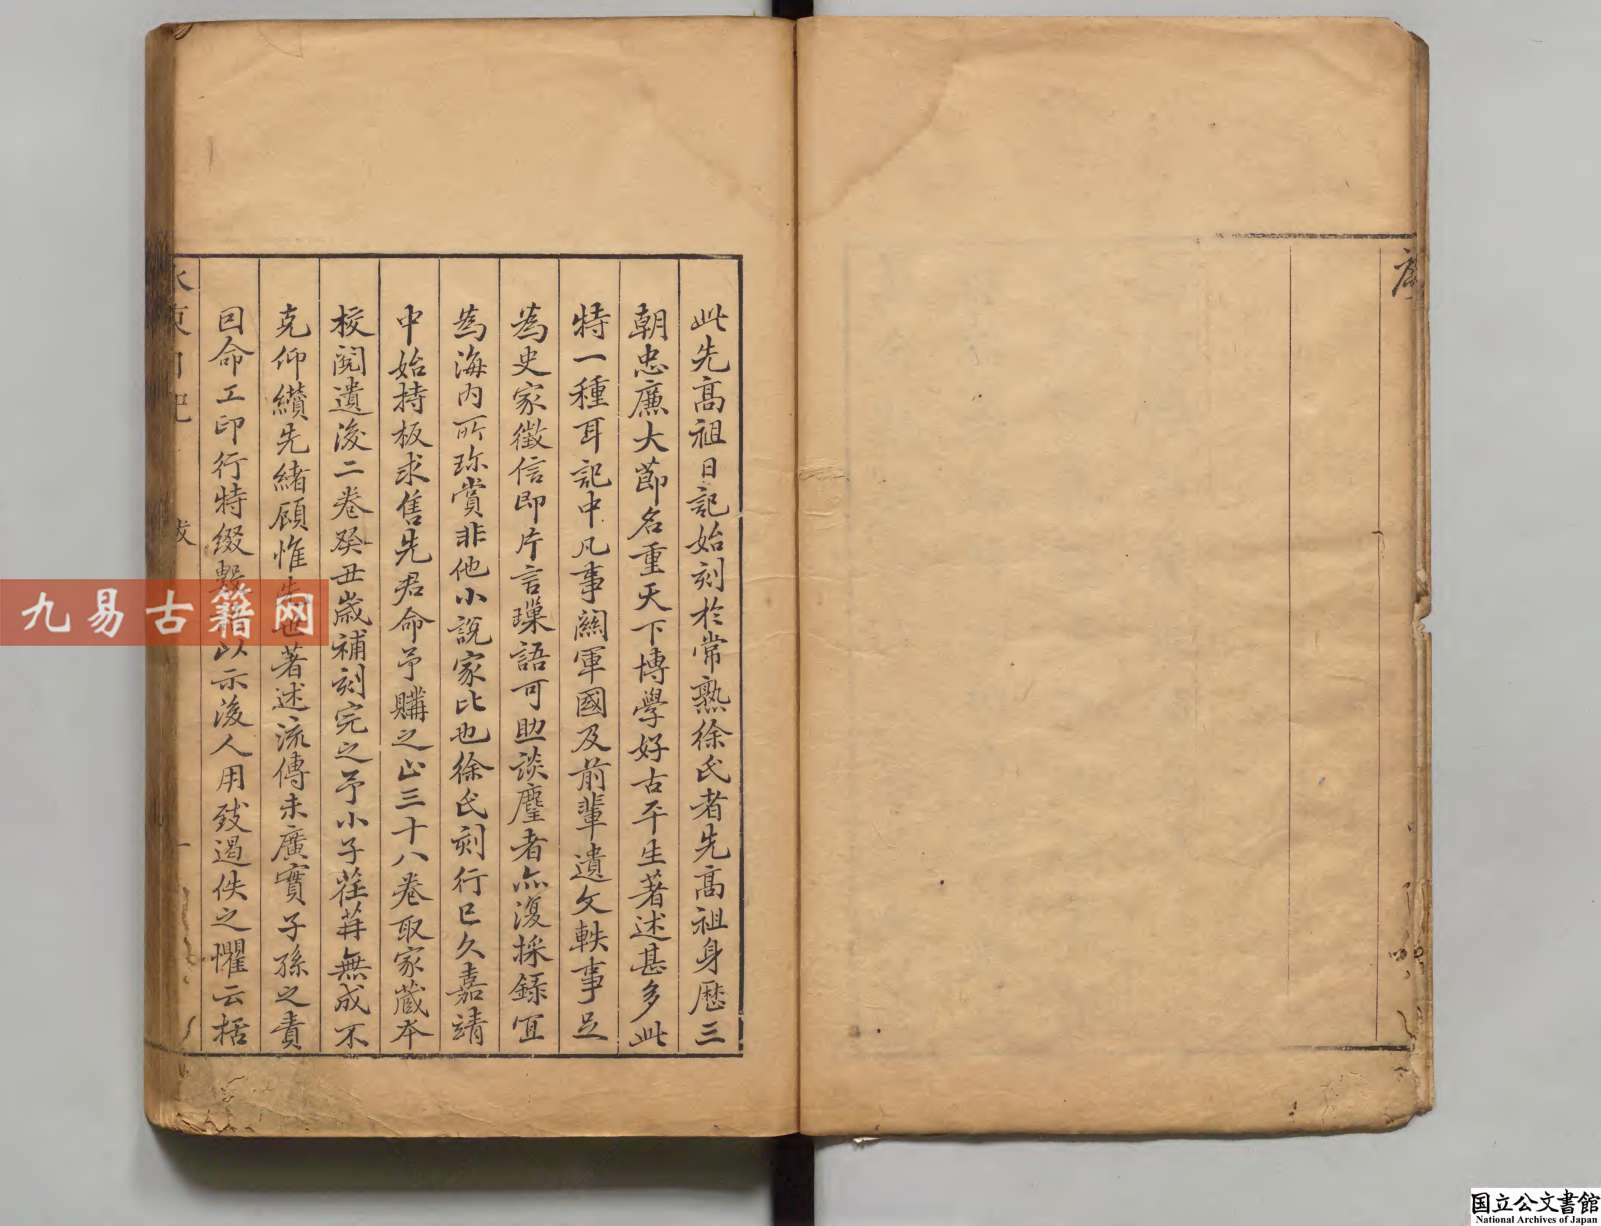 此先高祖日記始刻於常熟徐氏者先高祖身歷三
朝忠廉大節名重天下博學好古平生著述甚多此
特一種耳記中凡事關軍國及前輩遺文軼事足
為史家徵信即片言璅語可助談麈者亦復採錄宜
為海内所珍賞非他小說家比也徐氏刻行已久嘉靖
中始持板求售先君命予購之止三十八卷取家藏本
校閱遺後二卷癸丑歲補刻完之予小子荏苒無成不
克仰纘先緒顧惟先世著述流傳未廣實子孫之責
因命工印行特綴數語以示後人用致遏佚之懼云括
水東日記
跋
一
序
九易古籍网
国立公文書館
National Archives of Japan